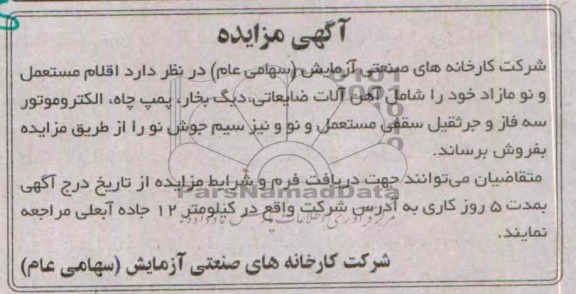 آگهی مزایده
شرکت کارخانه های صنعتی آزمایش (سهامی عام) در نظر دارد اقلام مستعمل
و نو مازاد خود را شامل آهن آلات ضایعاتی، دیگ بخار، پمپ چاه، الکتروموتور
سه فاز و جرثقیل سقفی مستعمل و نو و نیز سیم جوش نو را از طریق مزایده
بفروش برساند.
متقاضیان می‌توانند جهت دریافت فرم و شرایط مزایده از تاریخ درج آگهی
بمدت ۵ روز کاری به آدرس شرکت واقع در کیلومتر ۱۲ جاده آبعلی مراجعه
نمایند.
شرکت کارخانه های صنعتی آزمایش (سهامی عام)
ParsNamadData